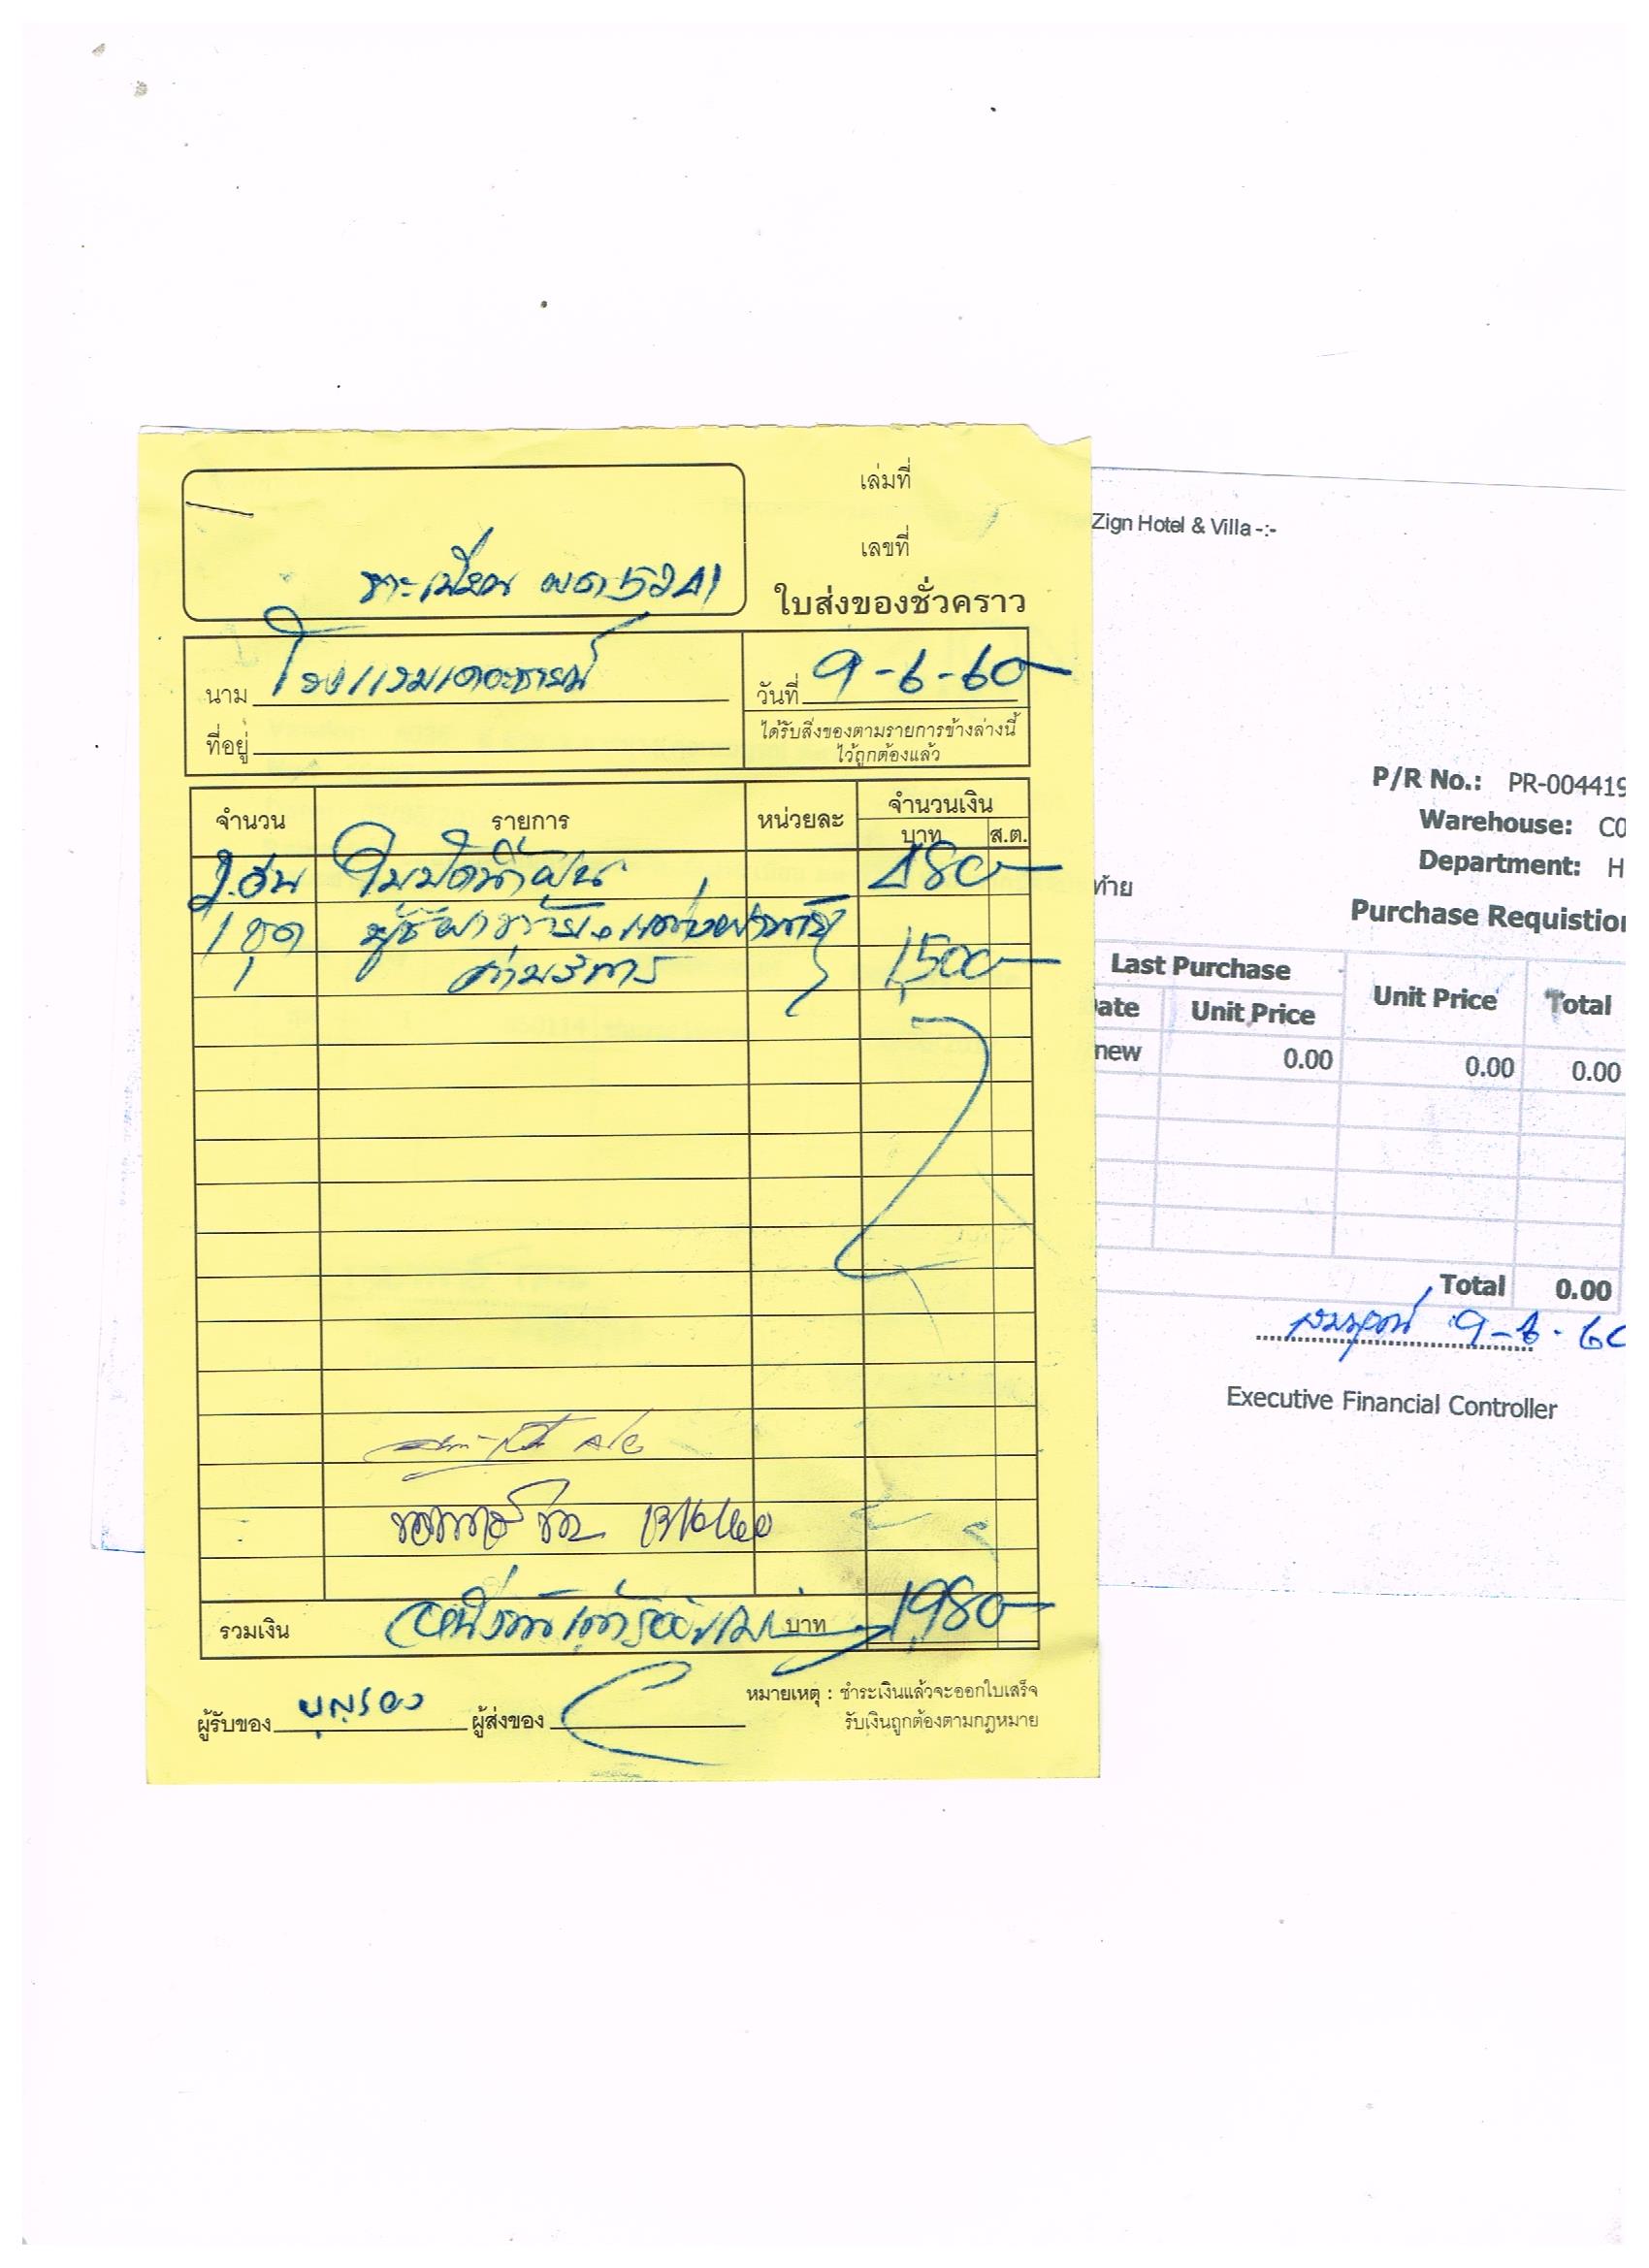 เล่มที่
เลขที่
ใบส่งของชั่วคราว
ทะเบียน ผด 5241
นาม โรงแรมเดอะซายน์
วันที่ 9-6-60
ที่อยู่
ได้รับสิ่งของตามรายการข้างล่างนี้
ไว้ถูกต้องแล้ว
จำนวน รายการ หน่วยละ จำนวนเงิน
บาท ส.ต.
2 อัน ใบปัดน้ำฝน 480-
1 ชุด
ค่าบริการ 1,500-
รวมเงิน บาท 1,980-
ผู้รับของ บุญรอง ผู้ส่งของ
หมายเหตุ : ชำระเงินแล้วจะออกใบเสร็จ
รับเงินถูกต้องตามกฎหมาย
Zign Hotel & Villa -:-
P/R No.: PR-004419
Warehouse: C0
Department: H
ท้าย
Purchase Requistion
Last Purchase Unit Price Total
ate Unit Price
new 0.00 0.00 0.00
Total 0.00
9-6-60
Executive Financial Controller